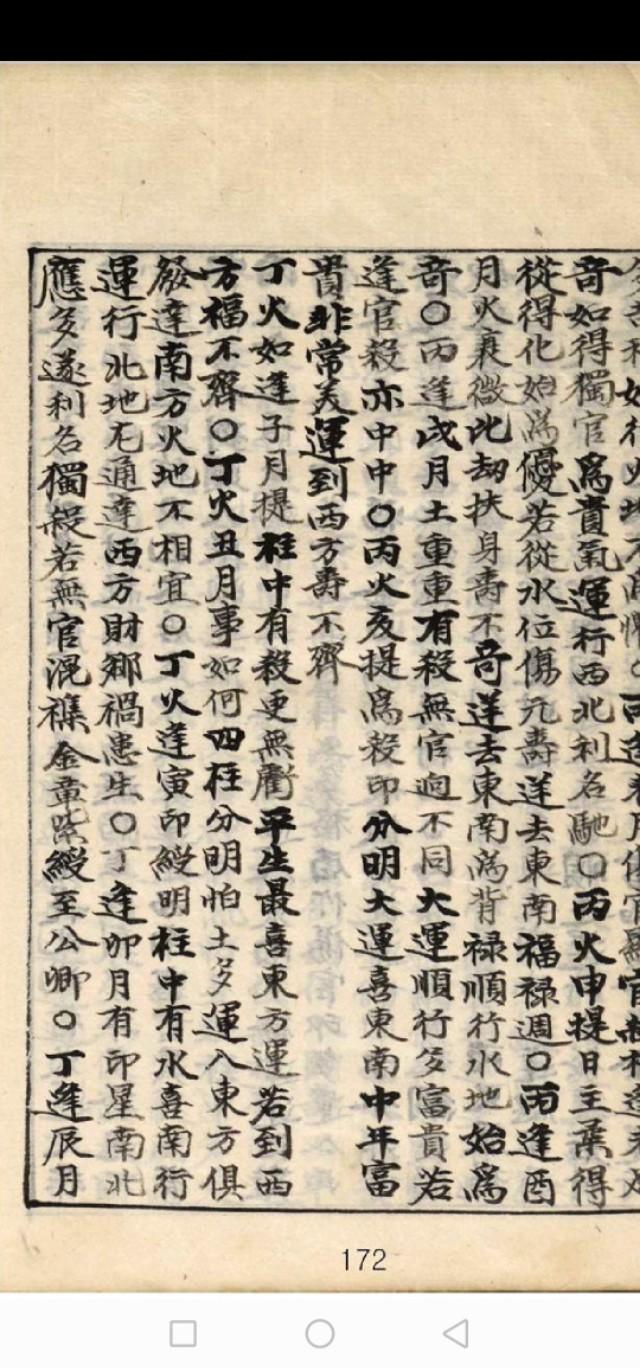 奇如得獨官為貴氣運行西北利名馳○丙火申提日主柔得
從得化始為優若從水位傷元壽逆去東南福祿週○丙逢酉
月火衰微比劫扶身壽不奇逆去東南為背祿順行水地始為
奇○丙逢戌月土重重有殺無官逈不同大運順行多富貴若
逢官殺亦中中○丙火亥提為殺印分明大運喜東南中年富
貴非常美運到西方壽不齊
丁火如逢子月提柱中有殺更無衝平生最喜東方運若到西
方福不齊○丁火丑月事如何四柱分明怕土多運入東方俱
發達南方火地不相宜○丁火逢寅印綬明柱中有水喜南行
運行北地尤通達西方財鄉禍患生○丁逢卯月有印星南北
應多遂利名獨殺若無官混雜金章紫綬至公卿○丁逢辰月
172